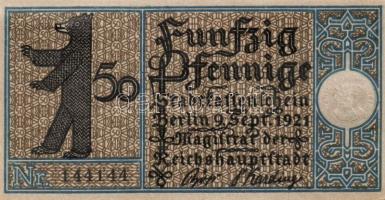 50
Funfzig
Pfennige
Stadtkassenschein
Berlin 9. Sept. 1921
Magistrat der
Reichshauptstadt
Nr. 144144